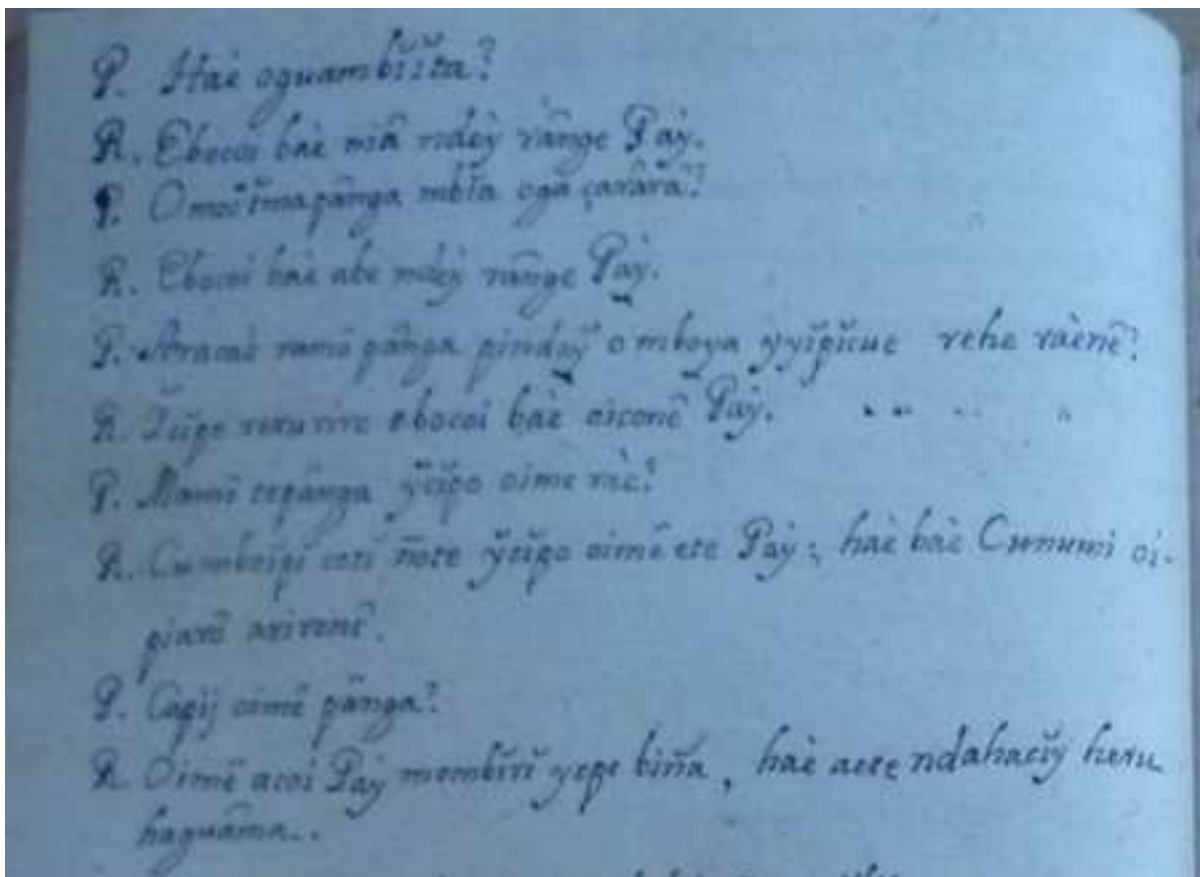 P. Haè oguambĭĭta?
R. Ebocoi baè miâ ndeỳ rânge Paỳ.
P. Omoĭmapânga mbĭta ogâ çarârâ?
R. Ebocoi baè abe ndeỳ rânge Paỳ.
P. Aracaè ramê pânga pindoy̆ omboya yy̆pĭcue rehe raènê?
R. Ĭcĭpo reru rire ebocoi baè oiconê Paỳ.
P. Mamê tepânga y̆cĭpo oime raè?
R. Cumboĭpĭ cotĭ ñote y̆cĭpo oimê ete Paỳ; haè baè Cunumi oi-
piarô arirenê.
P. Capij oimê pânga?
R. Oimê acoi Paỳ mombĭrĭ yepe biña, haè aete ndahacĭy̆ heru
haguâma..